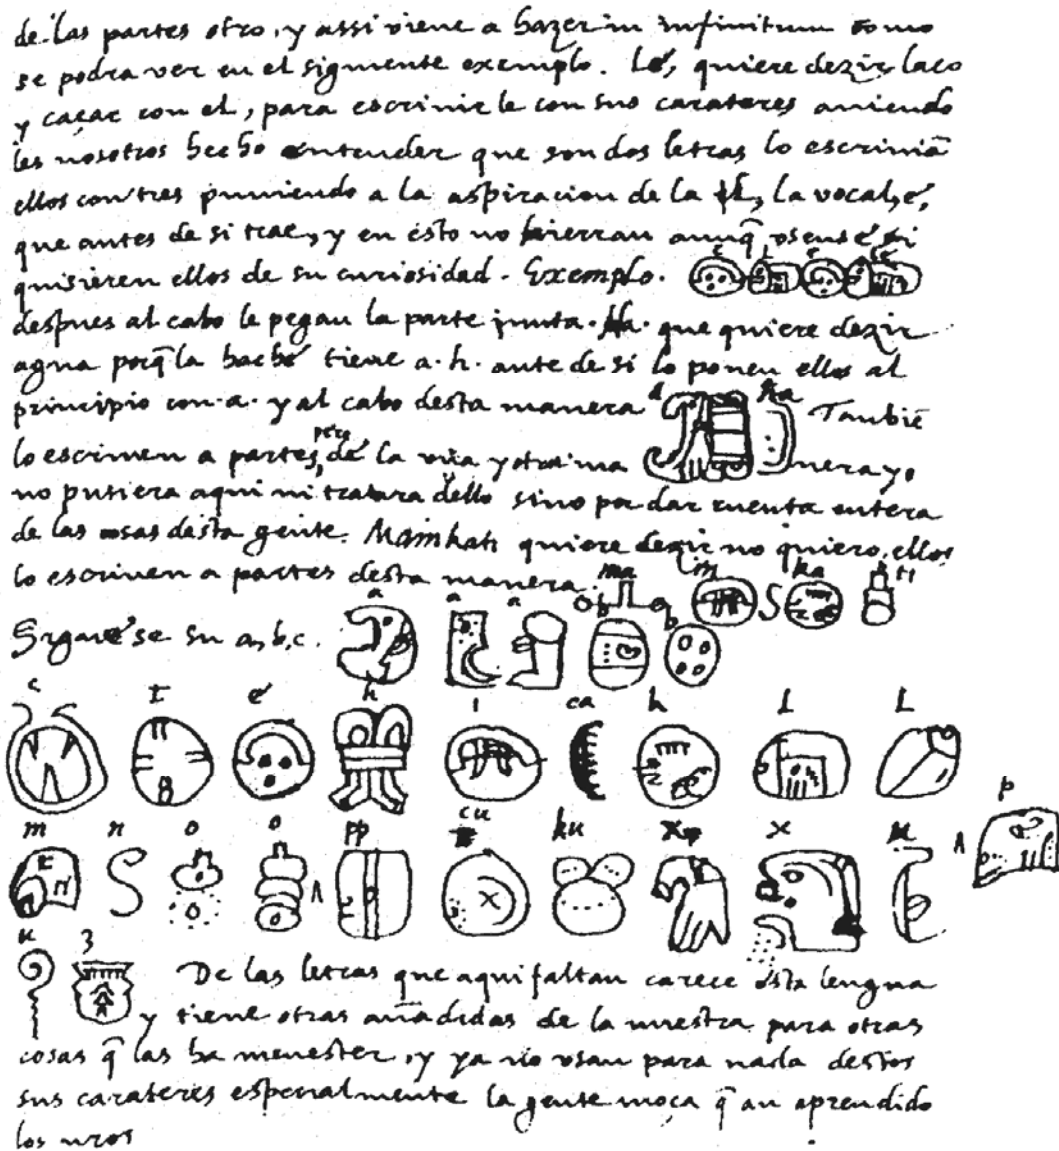 de las partes otro, y assi viene a hazer in infinitum como
se podra ver en el siguiente exemplo. Lé, quiere dezir laço
y caçar con el, para escrivirle con sus carateres aviendo
les nosotros hecho entender que son dos letras lo escriviā
ellos con tres puniendo a la aspiracion de la l, la vocal, é,
que antes de si trae, y en esto no hierran aunq̄ usense si
quisieren ellos de su curiosidad. Exemplo. e L e Le
despues al cabo le pegan la parte junta. Ha. que quiere dezir
agua porq̄ la hache tiene a. h. ante de si lo ponen ellos al
principio con. a. y al cabo desta manera a ha Tambiē
lo escriven a partes, pero de la una y otra ma nera yo
no pusiera aqui ni tratara dello sino por dar cuenta entera
de las cosas desta gente. Mainkati quiere dezir no quiero, ellos
lo escriven a partes desta manera. ma i n ka ti
Siguese su a, b, c. a a a b b
c t e h i ca k l l
m n o o pp cu ku x x u p
u z De las letras que aqui faltan carece esta lengua
y tiene otras añadidas de la nuestra para otras
cosas q̄ las ha menester, y ya no usan para nada destos
sus carateres especialmente la gente moça q̄ an aprendido
los nros